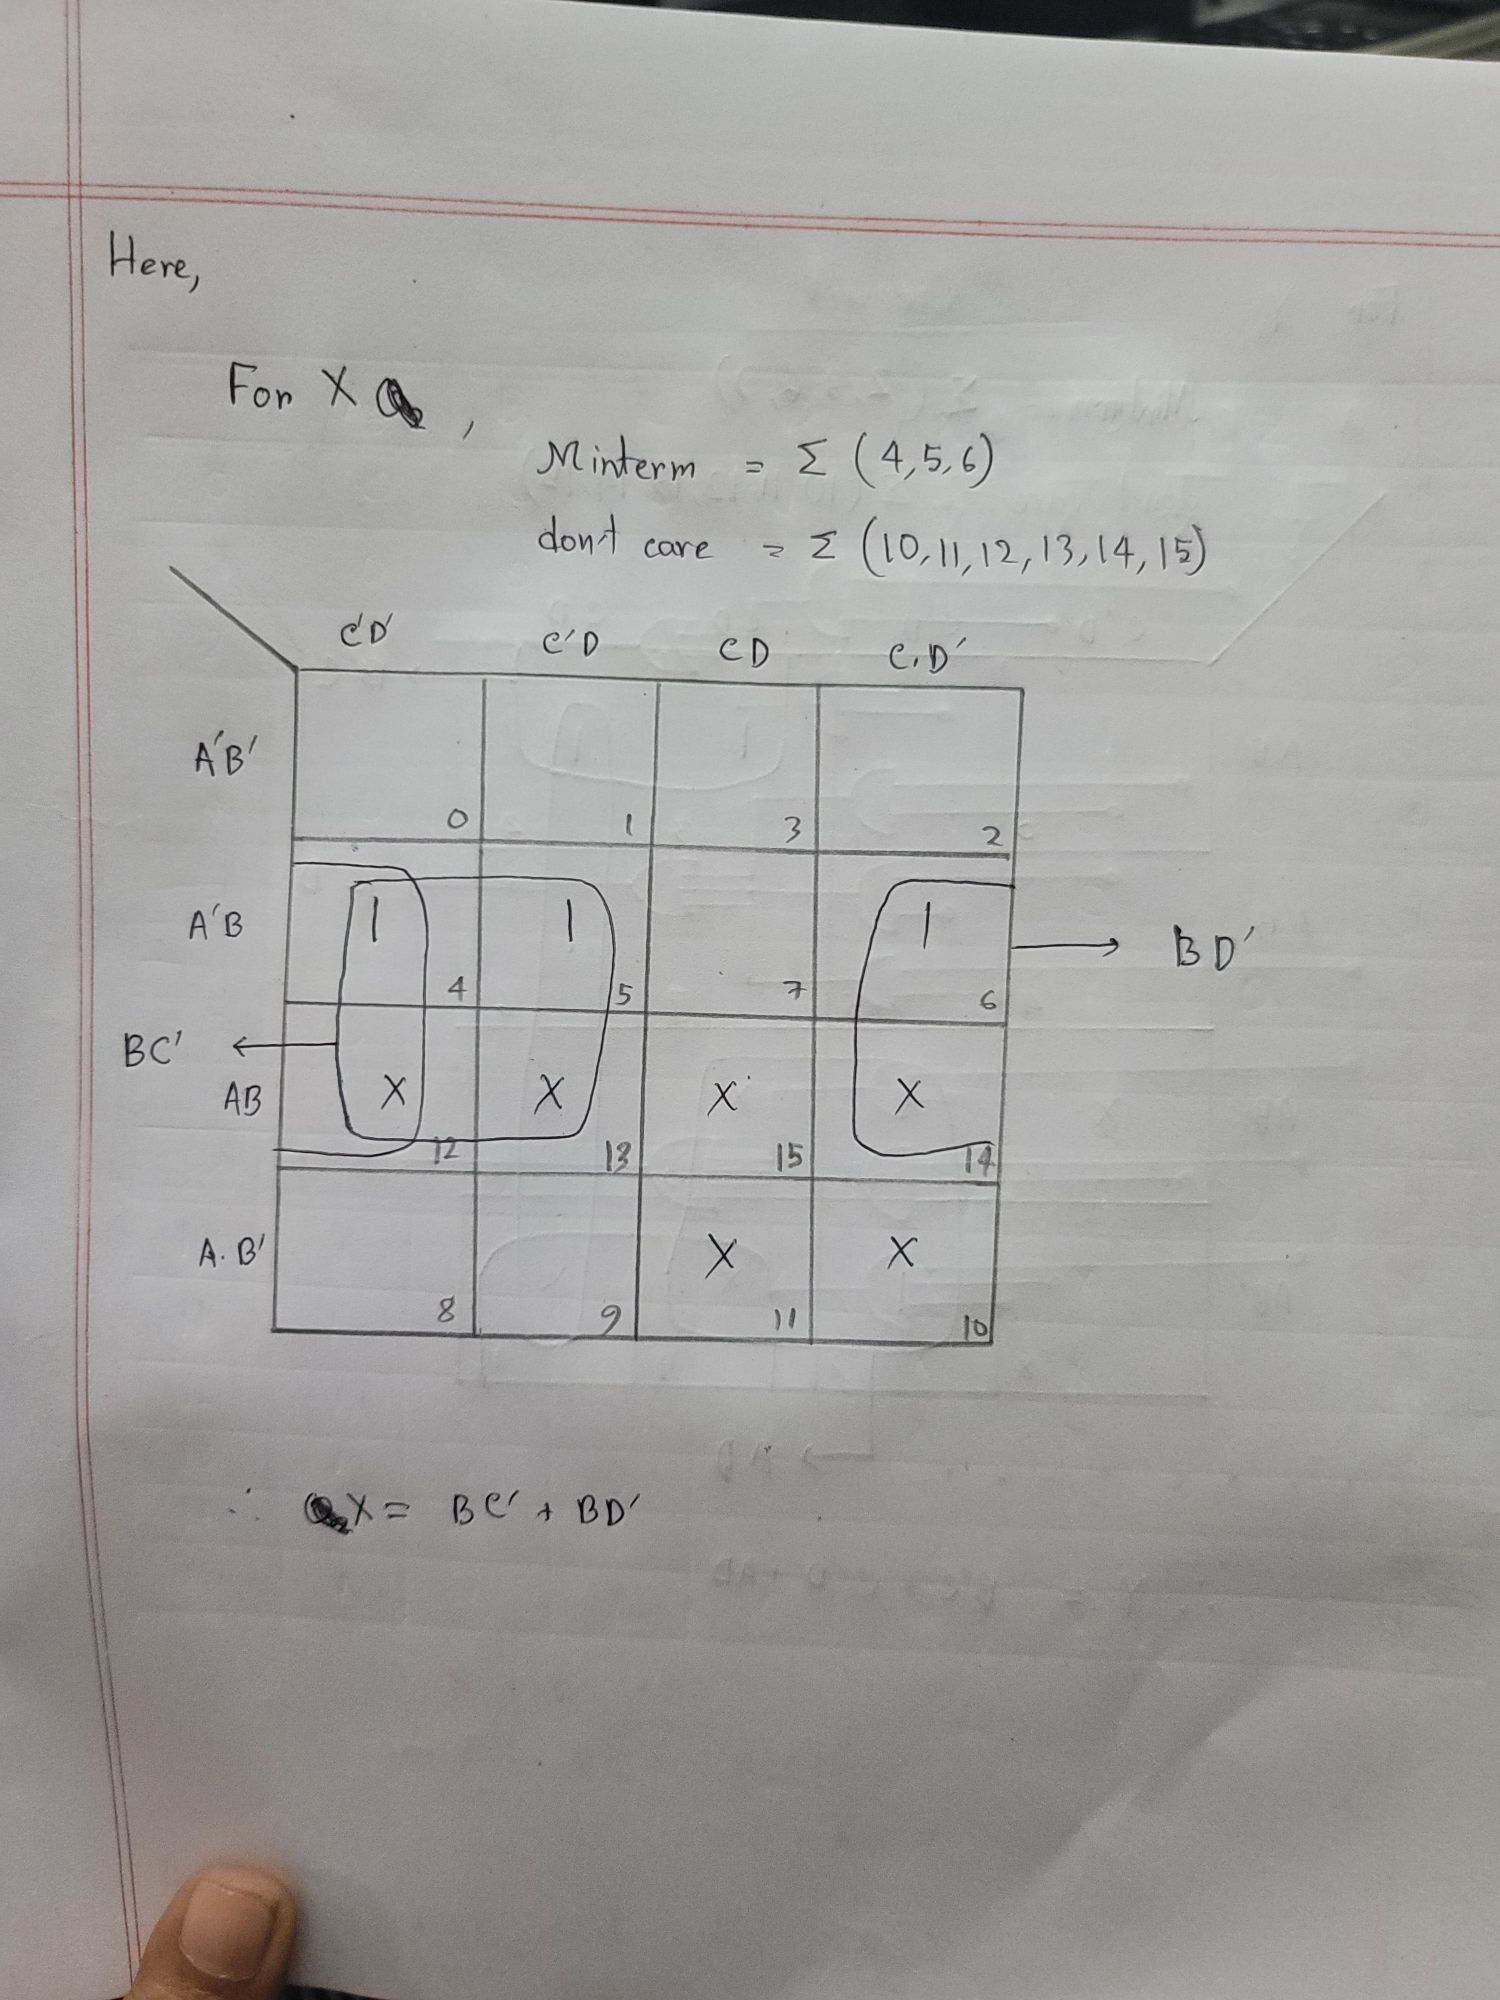 Here,
For X ,
Minterm = Σ (4,5,6)
don't care = Σ (10,11,12,13,14,15)
C'D' C'D CD C.D'
A'B' 0 1 3 2
A'B 1 4 1 5 7 1 6 → BD'
BC' ←
AB X 12 X 13 X 15 X 14
A.B' 8 9 X 11 X 10
∴ X = BC' + BD'